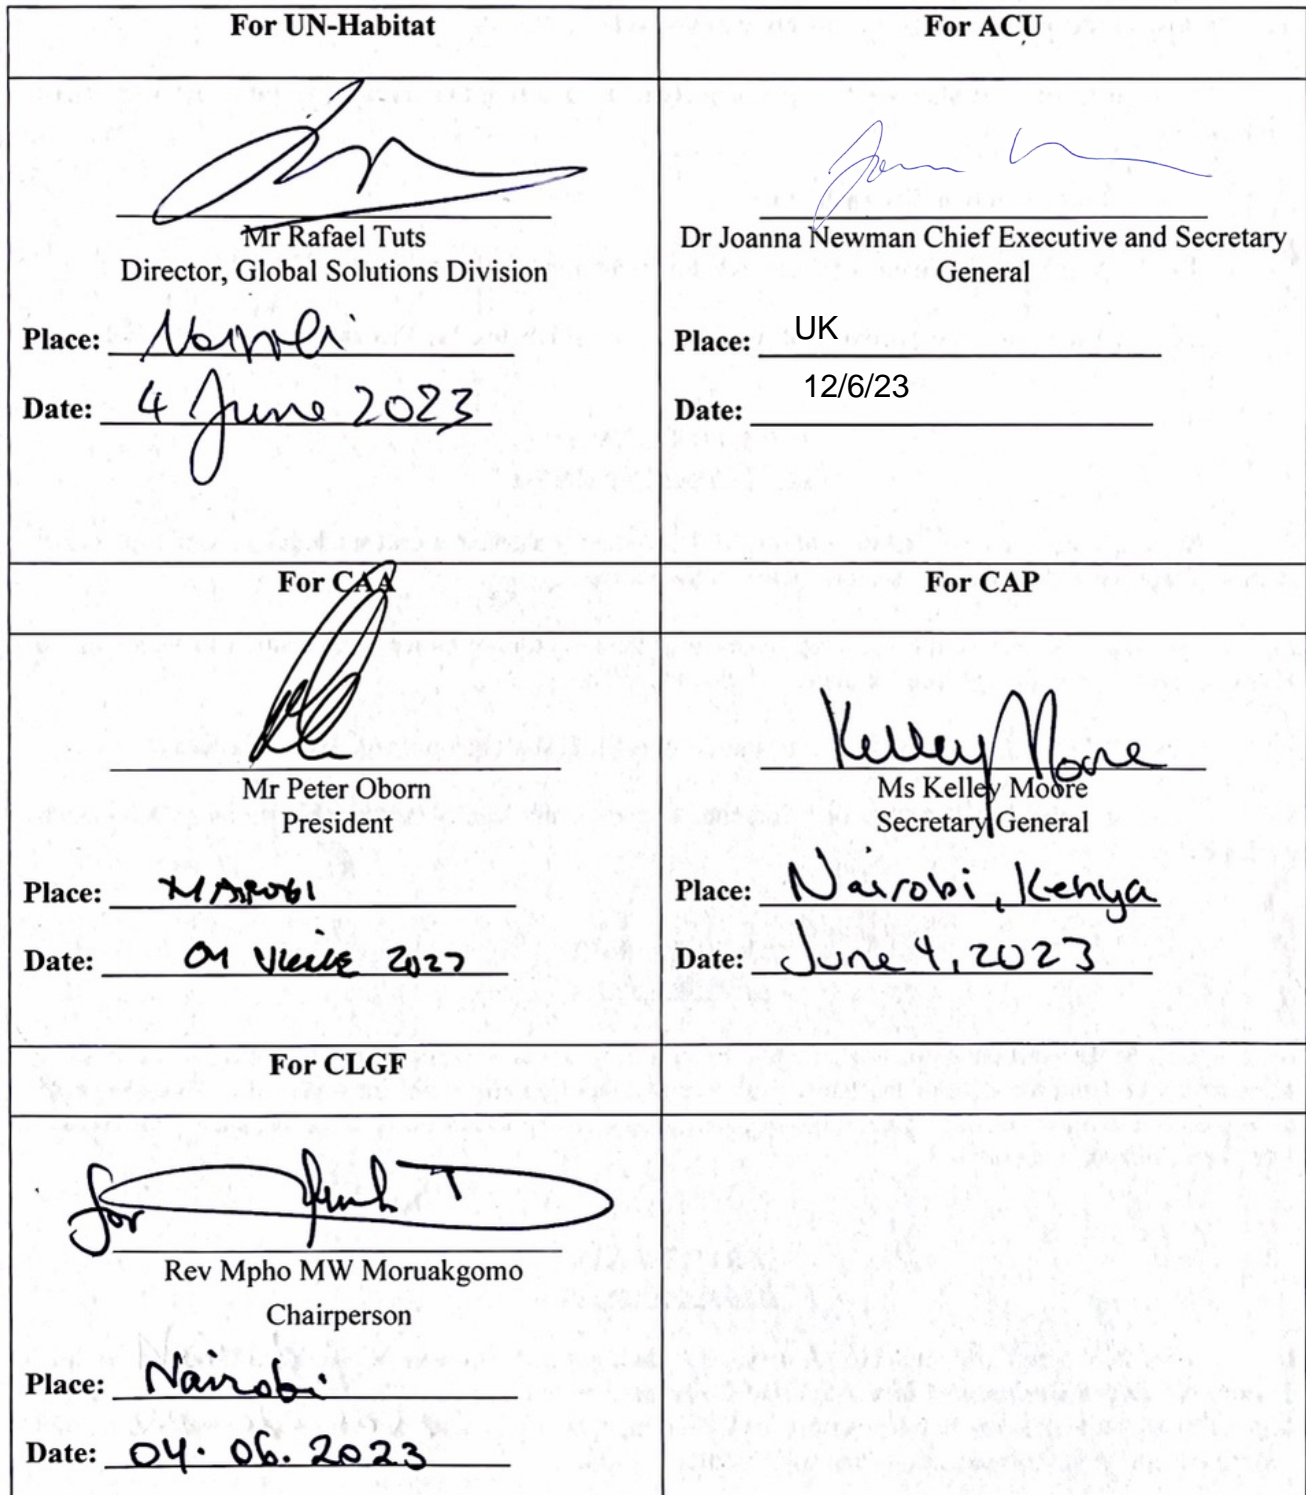 For UN-Habitat
Mr Rafael Tuts
Director, Global Solutions Division
Place: Nairobi
Date: 4 June 2023
For ACU
Dr Joanna Newman Chief Executive and Secretary
General
Place: UK
Date: 12/6/23
For CAA
Mr Peter Oborn
President
Place: NAIROBI
Date: 2023
For CAP
Kelley Moore
Ms Kelley Moore
Secretary General
Place: Nairobi, Kenya
Date: June 4, 2023
For CLGF
for
Rev Mpho MW Moruakgomo
Chairperson
Place: Nairobi
Date: 04.06.2023